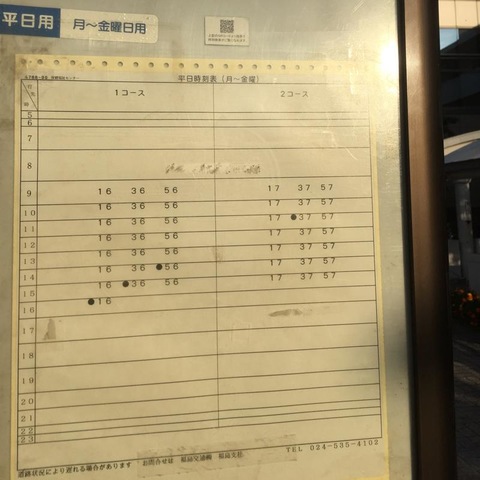 平日用 月～金曜日用
平日時刻表(月～金曜)
行先 時 1コース 2コース
5
6
7
8
9 16 36 56 17 37 57
10 16 36 56 17 37 57
11 16 36 56 17 ●37 57
12 16 36 56 17 37 57
13 16 36 56 17 37 57
14 16 36 ●56 17 37 57
15 16 ●36 56 17 37 57
16 ●16
17
18
19
20
21
22
23
道路状況により遅れる場合があります お問合せは 福島交通㈱ 福島支社 TEL 024-535-4102